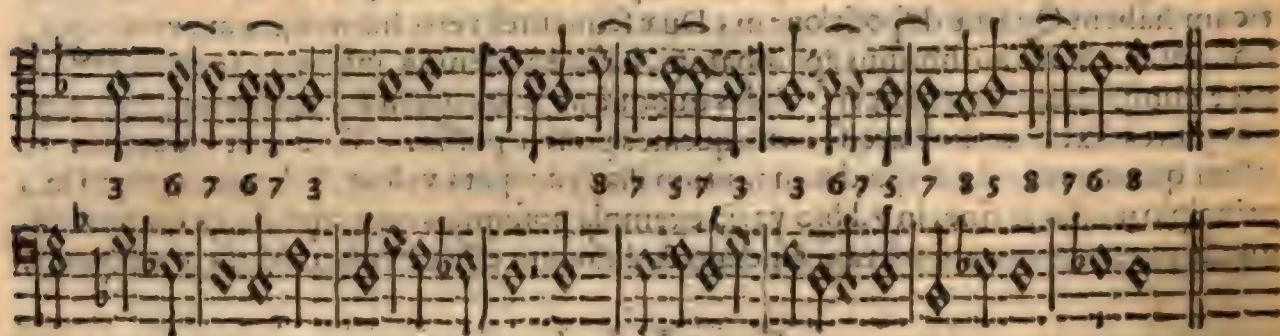 3 6 7 6 7 3 8 7 5 7 3 3 6 7 5 7 8 5 8 7 6 8